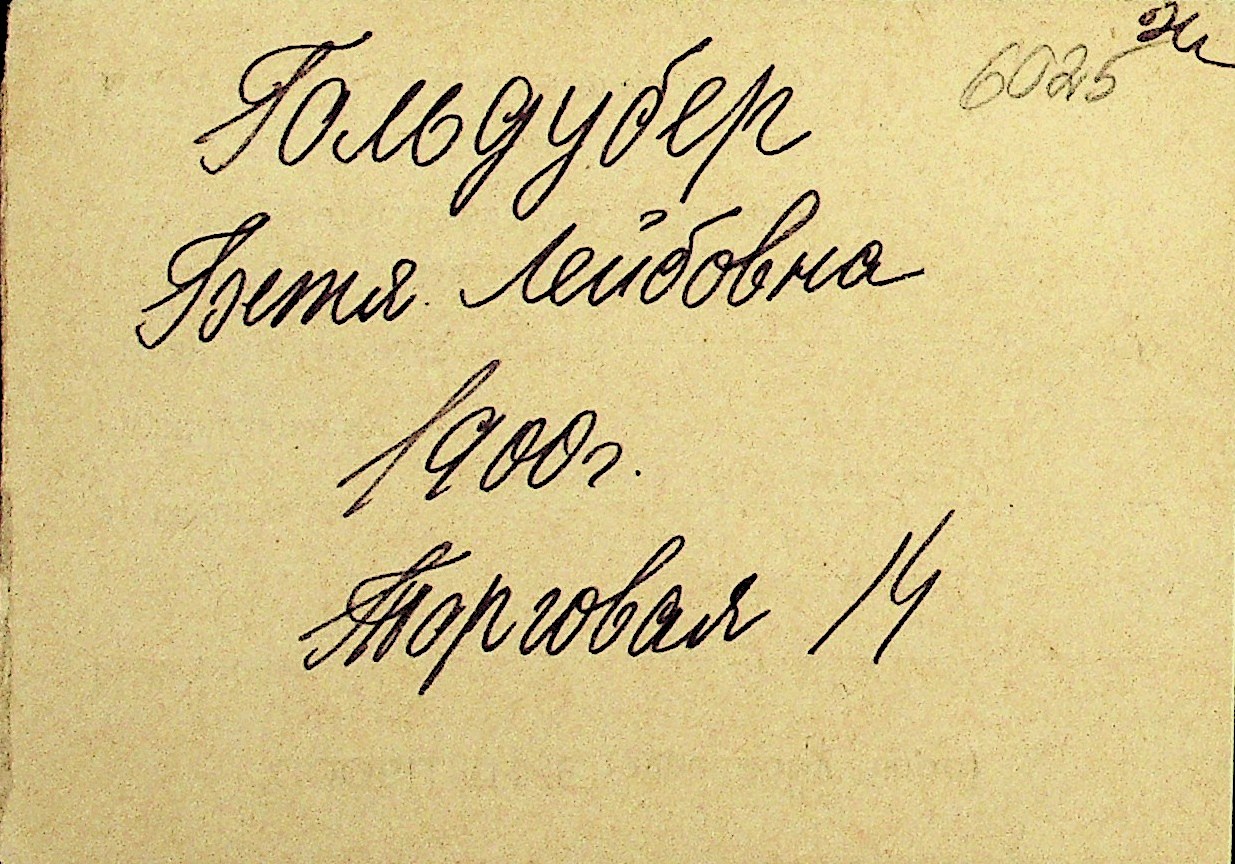 6025
Гольдубер
Бетя Лейбовна
1900г.
Торговая 14